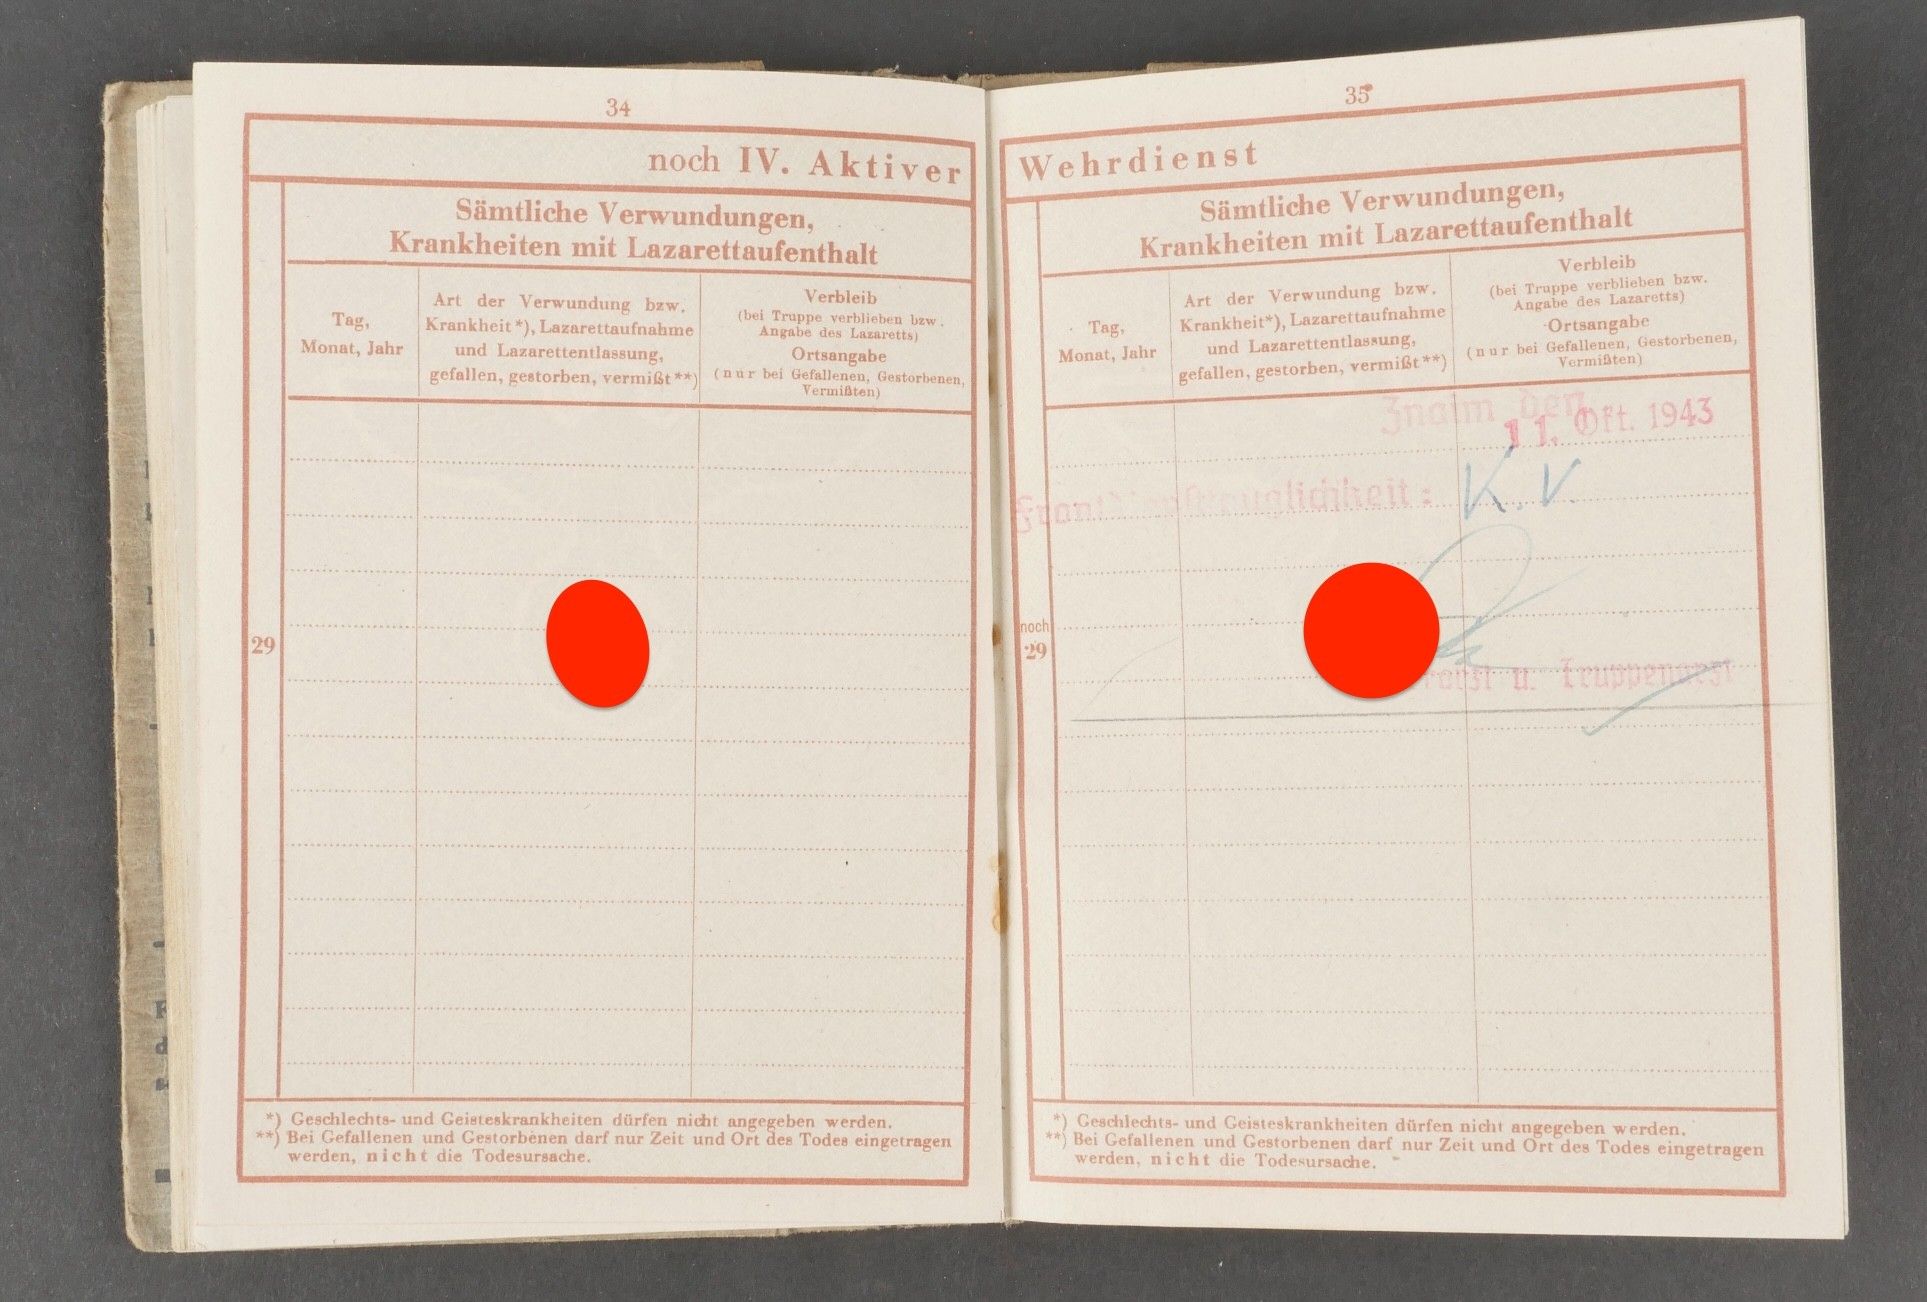 34
noch IV. Aktiver
Sämtliche Verwundungen,
Krankheiten mit Lazarettaufenthalt
Tag,
Monat, Jahr
Art der Verwundung bzw.
Krankheit*), Lazarettaufnahme
und Lazarettentlassung,
gefallen, gestorben, vermißt**)
Verbleib
(bei Truppe verblieben bzw.
Angabe des Lazaretts)
Ortsangabe
(nur bei Gefallenen, Gestorbenen,
Vermißten)
29
*) Geschlechts- und Geisteskrankheiten dürfen nicht angegeben werden.
**) Bei Gefallenen und Gestorbenen darf nur Zeit und Ort des Todes eingetragen
werden, nicht die Todesursache.
35
Wehrdienst
Sämtliche Verwundungen,
Krankheiten mit Lazarettaufenthalt
Tag,
Monat, Jahr
Art der Verwundung bzw.
Krankheit*), Lazarettaufnahme
und Lazarettentlassung,
gefallen, gestorben, vermißt**)
Verbleib
(bei Truppe verblieben bzw.
Angabe des Lazaretts)
Ortsangabe
(nur bei Gefallenen, Gestorbenen,
Vermißten)
Znaim den
11. Okt. 1943
Frontdienfttauglichkeit: K.V.
noch
29
u. Truppenarzt
*) Geschlechts- und Geisteskrankheiten dürfen nicht angegeben werden.
**) Bei Gefallenen und Gestorbenen darf nur Zeit und Ort des Todes eingetragen
werden, nicht die Todesursache.